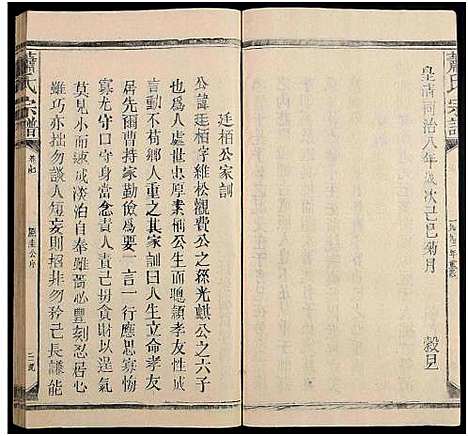 蕭氏宗譜
皇清同治八年歲次己巳菊月
穀旦
廷栢公家訓
公諱廷栢字維松觀賢公之孫光麒公之六子
也為人處世忠厚素稱公生而聰頴孝友性成
言動不苟鄉人重之其家訓曰人生立命孝友
居先耳曹持家勤儉要一言一行應思寡悔
寡尤守身當念責人責己毋貪財以逞氣
莫見小而速成淡泊自奉雖嗇必豐刻忍居心
雖巧亦拙勿談人短妄則招非勿矜己長謙能
蕭氏宗譜
卷
公序